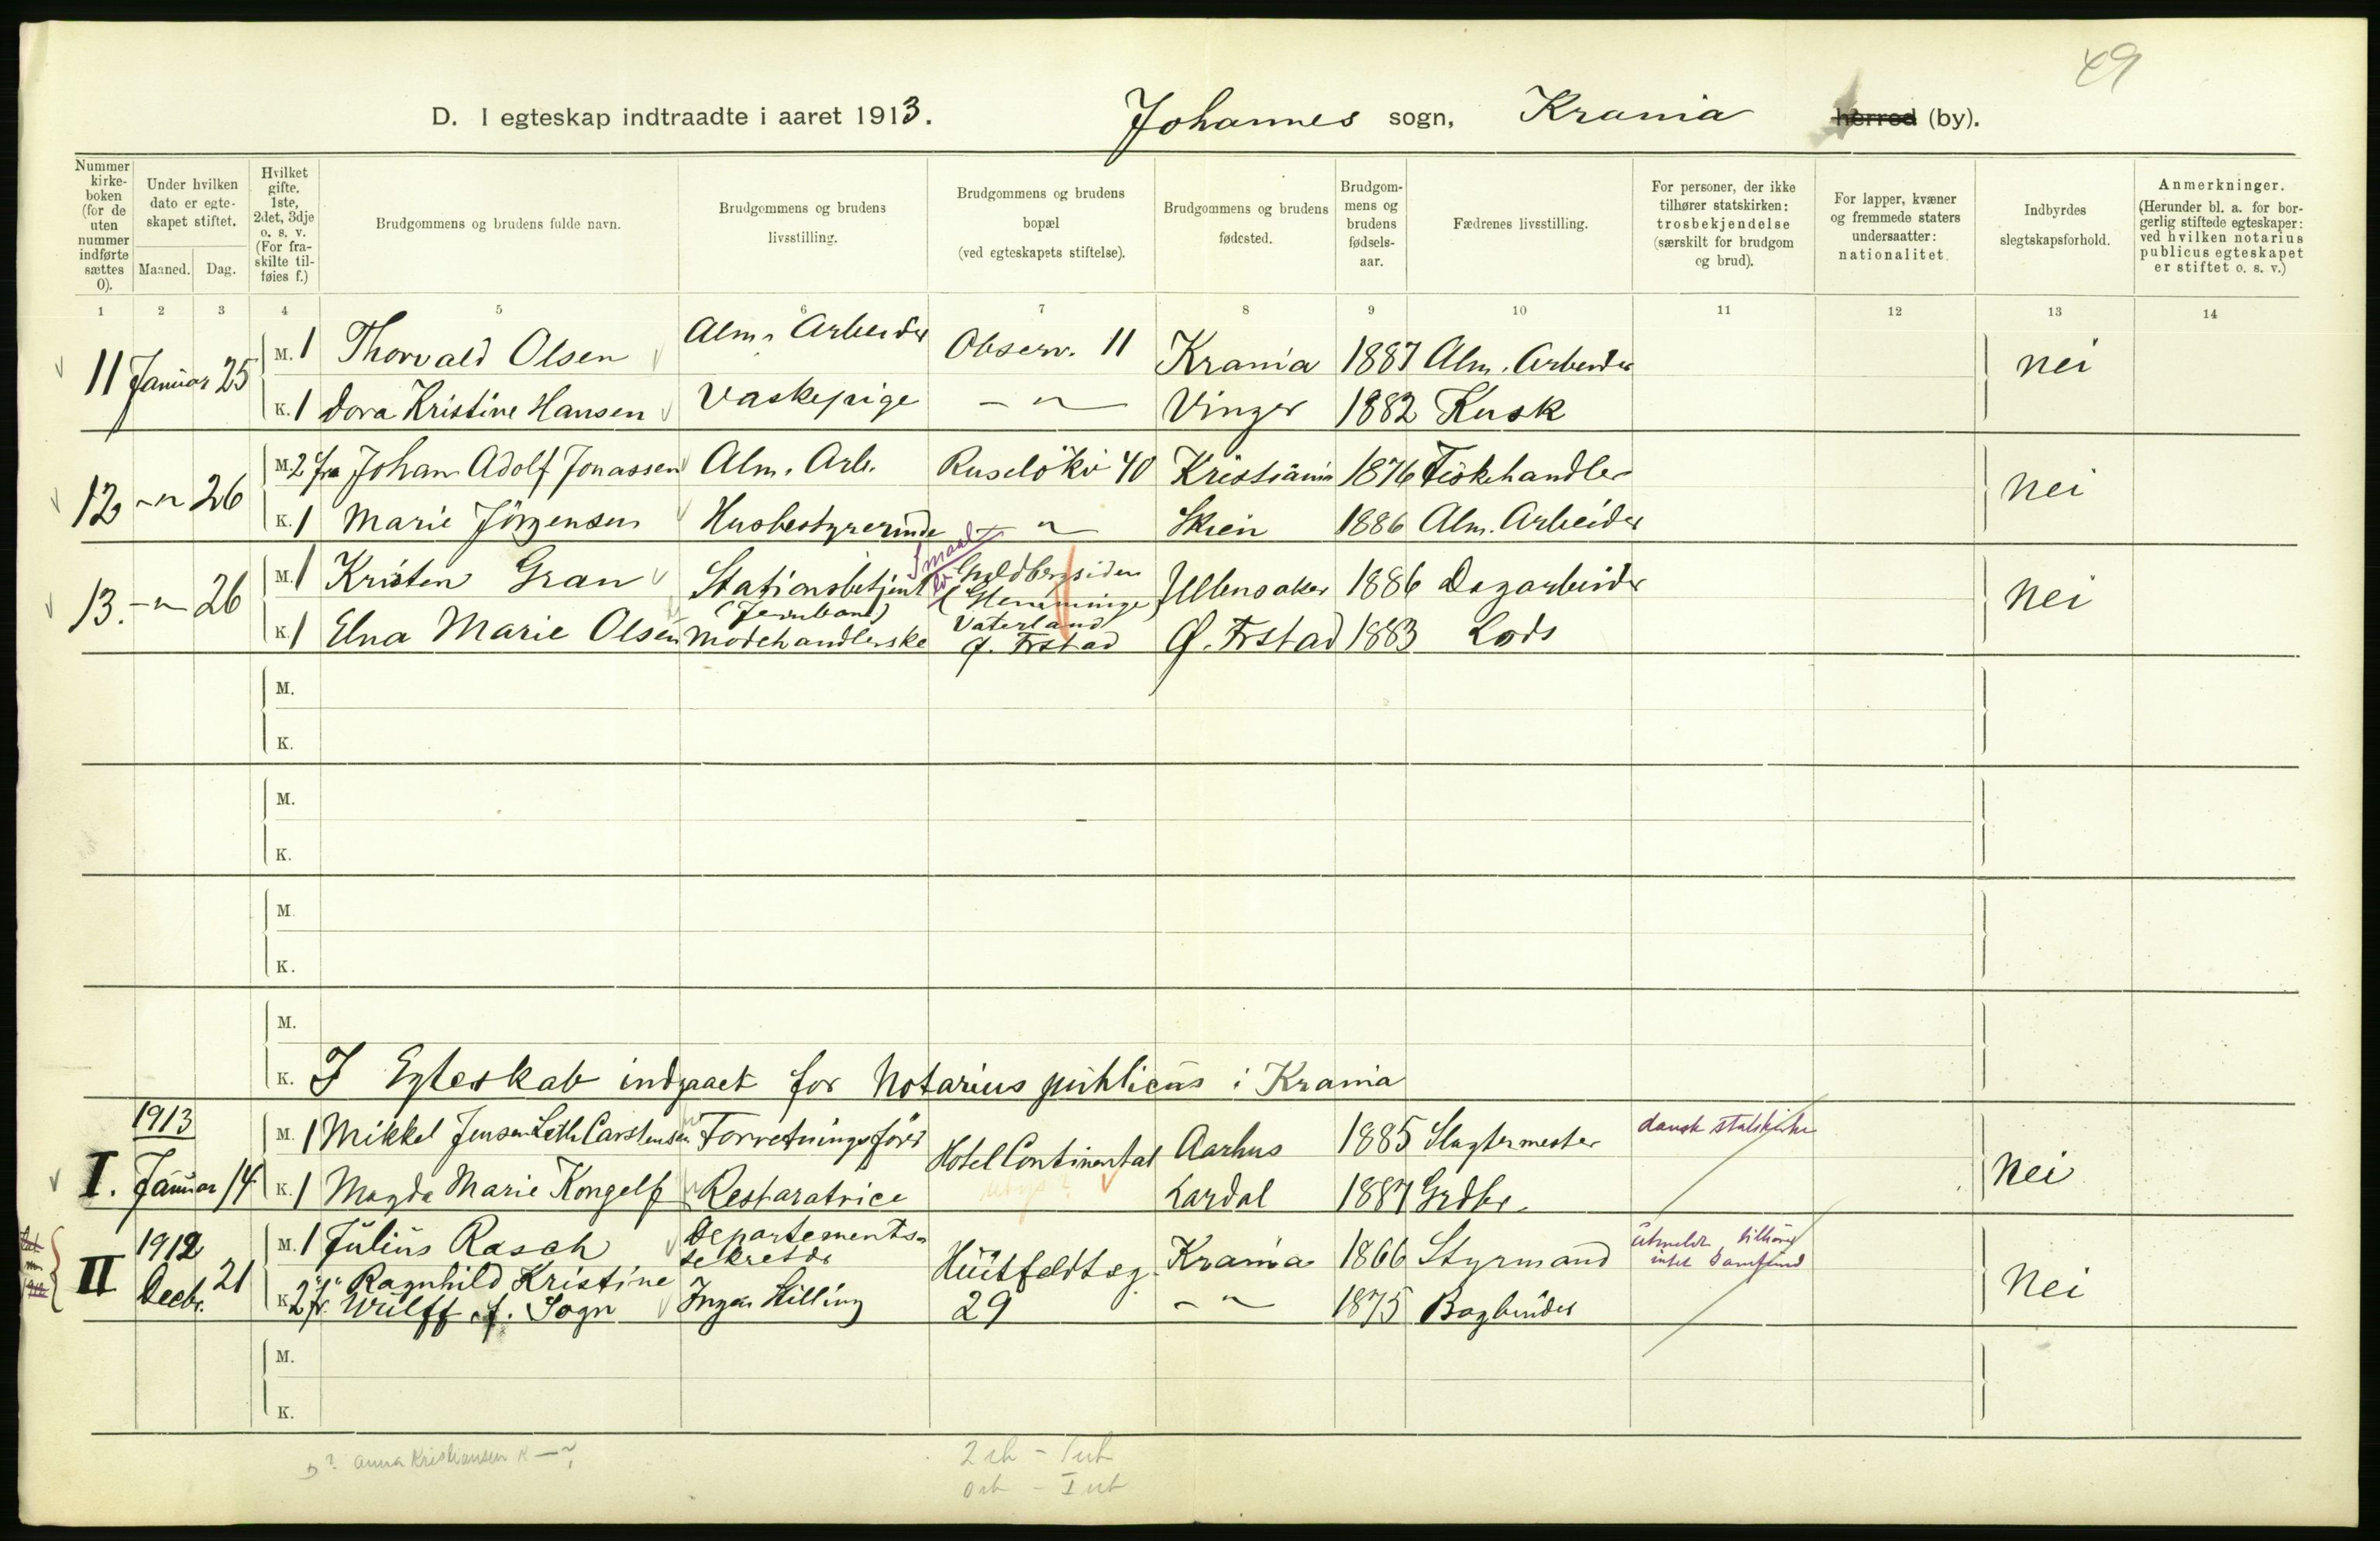 49
D. I egteskap indtraadte i aaret 1913. Johannes sogn, Krania herred (by).
Nummer kirke-boken (for de uten nummer indførte sættes 0).
Under hvilken dato er egte-skapet stiftet.
Maaned. Dag.
Hvilket gifte. 1ste, 2det, 3dje o. s. v. (For fra-skilte til-føies f.)
Brudgommens og brudens fulde navn.
Brudgommens og brudens livsstilling.
Brudgommens og brudens bopæl (ved egteskapets stiftelse).
Brudgommens og brudens fødested.
Brudgom-mens og brudens fødsels-aar.
Fædrenes livsstilling.
For personer, der ikke tilhører statskirken: trosbekjendelse (særskilt for brudgom og brud).
For lapper, kvæner og fremmede staters undersaatter: nationalitet.
Indbyrdes slegtskapsforhold.
Anmerkninger. (Herunder bl. a. for bor-gerlig stiftede egteskaper: ved hvilken notarius publicus egteskapet er stiftet o. s. v.)
1 2 3 4 5 6 7 8 9 10 11 12 13 14
11 Januar 25 M. 1 Thorvald Olsen Alm. Arbeider Observ. 11 Krania 1887 Alm. Arbeider nei
K. 1 Dora Kristine Hansen Vaskepige — " — Vinger 1882 Kusk
12 - " 26 M. 2 fra Johan Adolf Jonassen Alm. Arb. Ruselökv 40 Kristiania 1876 Fiskehandler nei
K. 1 Marie Jörgensen Husbestyrerinde " Skien 1886 Alm. Arbeider
13. - " 26 M. 1 Kristen Gran Stationsbetjent (Jernbane) Guldbergsiden (Glemminge) Ullensaker 1886 Dagarbeider nei
K. 1 Elna Marie Olsen Modehandlerske Vaterland F. Frstad F. Frstad 1883 Lods
M.
K.
M.
K.
M.
K.
M.
K. I Egteskab indgaaet for Notarius publicus i Krania
1913
I. Januar 14 M. 1 Mikkel Jensen Leth Carstensen Forretningsförer Hotel Continental Aarhus 1885 Slagtermester dansk statskirke nei
K. 1 Magda Marie Kongelf Restaratrice Lardal 1887 Grdbr.
1912
II Decbr. 21 M. 1 Julius Rasch Departements-sekretær Huitfeldtsg. 29 Krania 1866 Styrmand utmeldt tilhörer intet samfund nei
K. 2 fr. Ragnhild Kristine Wülff f. Sogn Ingen Stilling - " - 1875 Bogbinder
M.
K.
? Anna Kristiansen K — ?